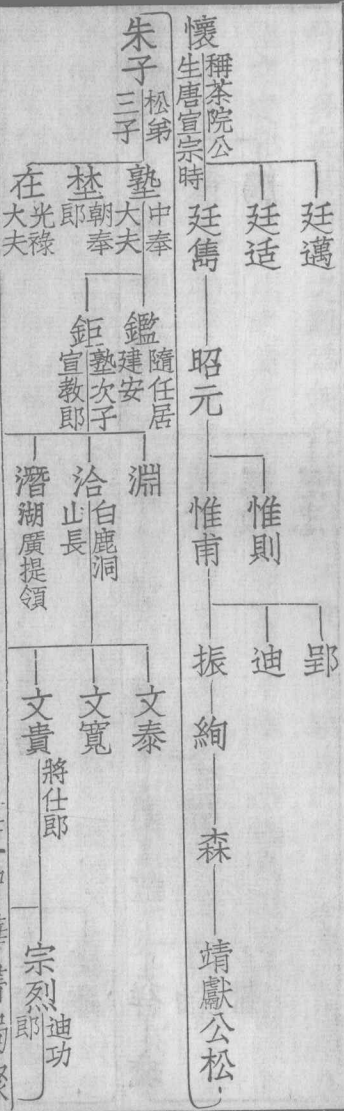 懷
稱茶院公
生唐宣宗時
廷邁
廷适
廷雋
昭元
惟則
惟甫
郢
迪
振
絢
森
靖獻公松
朱子
松弟
三子
塾
中奉
大夫
埜
朝奉
郎
在
光祿
大夫
鑑
隨任居
建安
鉅
塾次子
宣教郎
淵
洽
白鹿洞
山長
潛
湖廣提領
文泰
文寬
文貴
將仕郎
宗烈
迪功
郎